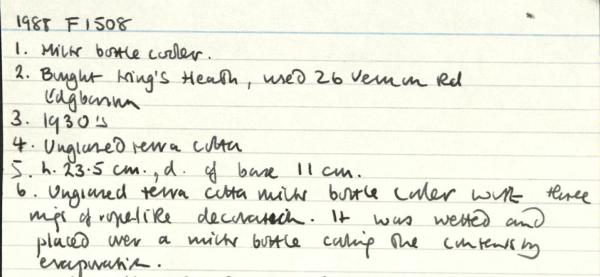 1988 F1508
1. Milk bottle cooler.
2. Bought King's Heath, used 26 Vernon Rd
Edgbaston
3. 1930's
4. Unglazed terra cotta
5. h. 23.5 cm., d. of base 11 cm.
6. Unglazed terra cotta milk bottle cooler with three
rings of ropelike decoration. It was wetted and
placed over a milk bottle cooling the contents by
evaporation.